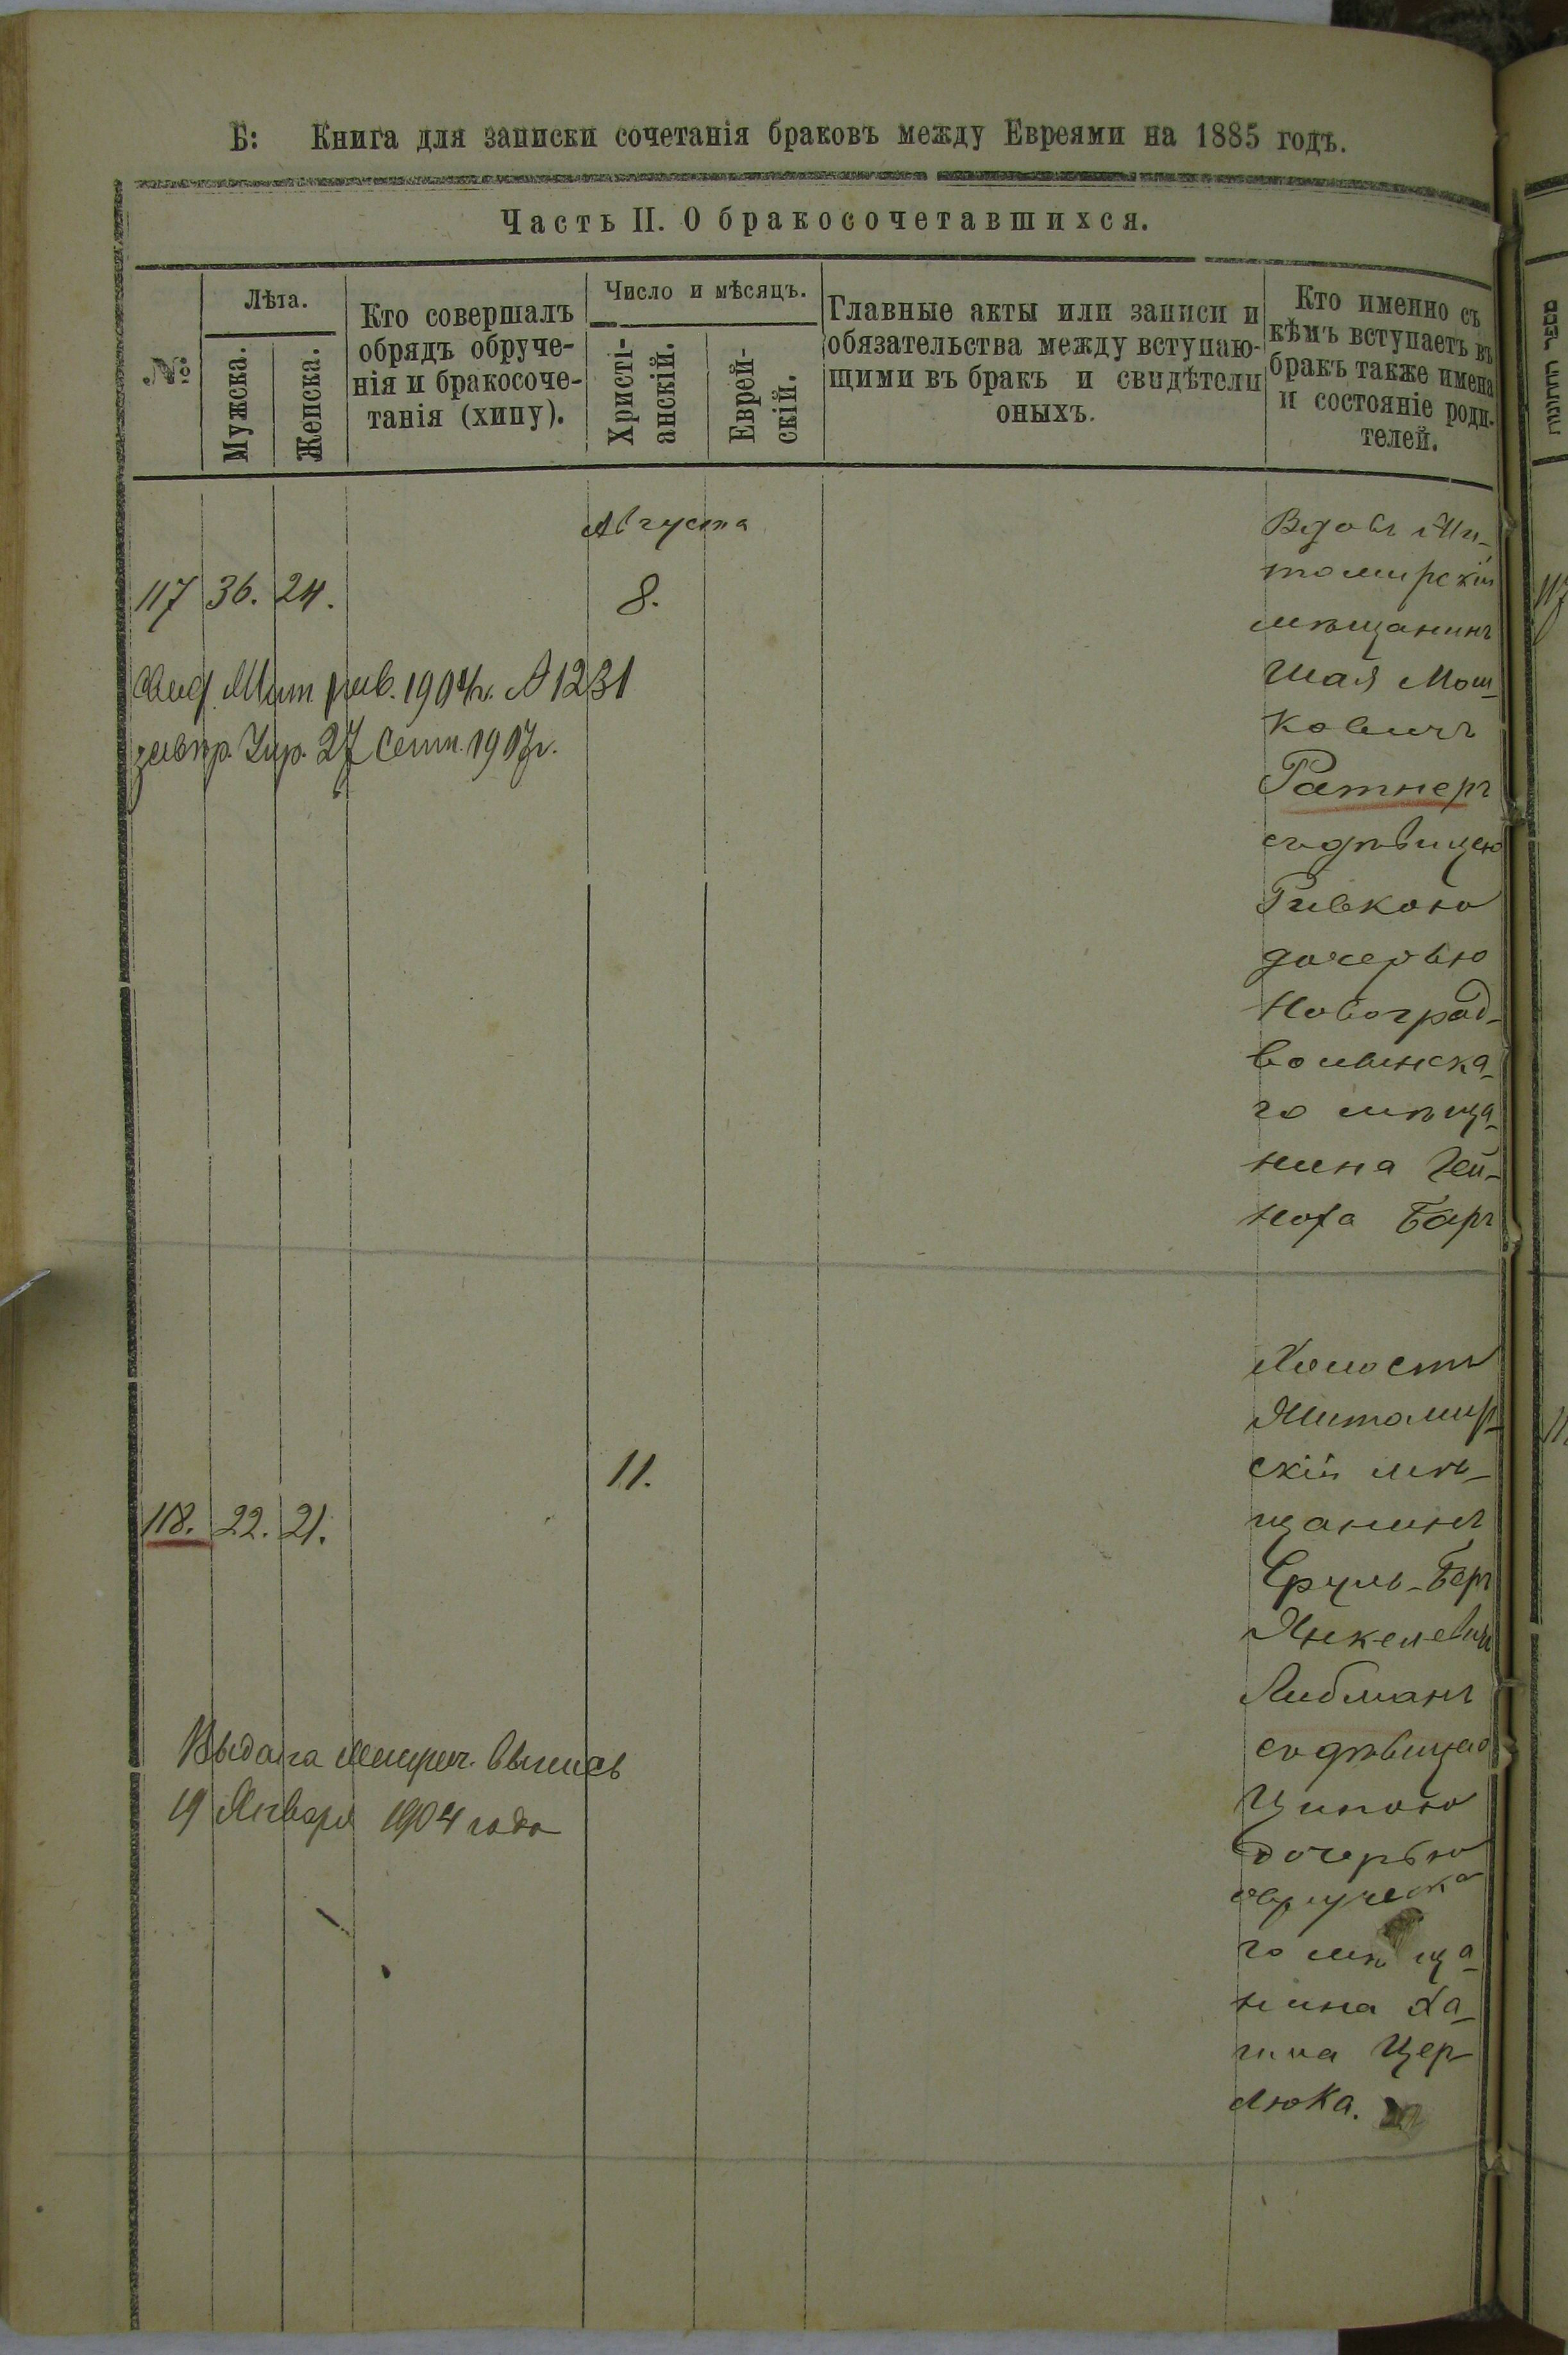 Б: Книга для записки сочетанія браковъ между Евреями на 1885 годъ.
Часть II. О бракосочетавшихся.
№
Лѣта.
Мужска.
Женска.
Кто совершалъ
обрядъ обруче-
нія и бракосоче-
танія (хипу).
Число и мѣсяцъ.
Христі-
анскій.
Еврей-
скій.
Главные акты или записи и
обязательства между вступаю-
щими въ бракъ и свидѣтели
оныхъ.
Кто именно съ
кѣмъ вступаетъ въ
бракъ также имена
и состояніе роди-
телей.
Августа
117 36. 24. 8.
Вдовъ Жи-
томирскій
мѣщанинъ
Шая Мош-
ковичъ
Ратнеръ
съ дѣвицею
Ривкою
дочерью
Новоград-
волынска-
го мѣща-
нина
Барг
1904г. № 1231
27 Сент. 1907г.
118. 22. 21. 11.
Холостъ
Житомир-
скій мѣ-
щанинъ
Сруль-Беръ
Янкелевичъ
Либманъ
съ дѣвицею
Ципою
дочерью
овручска-
го мѣща-
нина Ха-
има Цер-
люка.
Выдана метрич. выпись
19 Января 1904 года